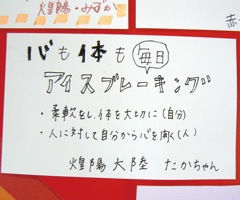 煌陽・みずか
赤
心も体も毎日
アイスブレーキング
・柔軟をし、体を大切に(自分)
・人に対して自分から心を開く(人)
煌陽大陸 たかちゃん